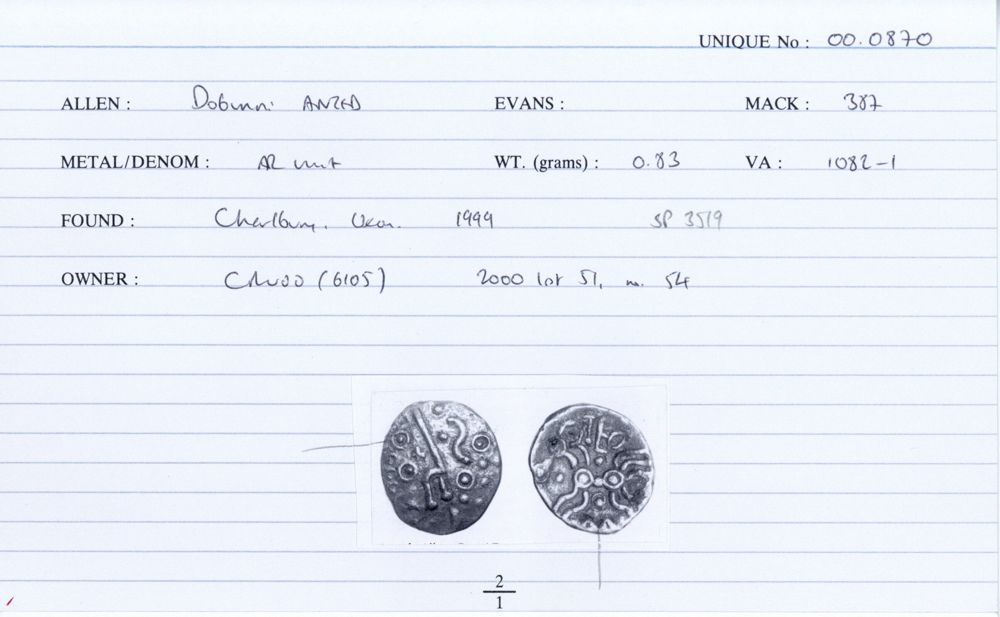 UNIQUE No : 00.0870
ALLEN : Dobunni ANTED EVANS : MACK : 387
METAL/DENOM : AR unit WT. (grams) : 0.83 VA : 1082-1
FOUND : Charlbury, Oxon. 1999 SP 3519
OWNER : (6105) 2000 lot 51, no. 54
2
1